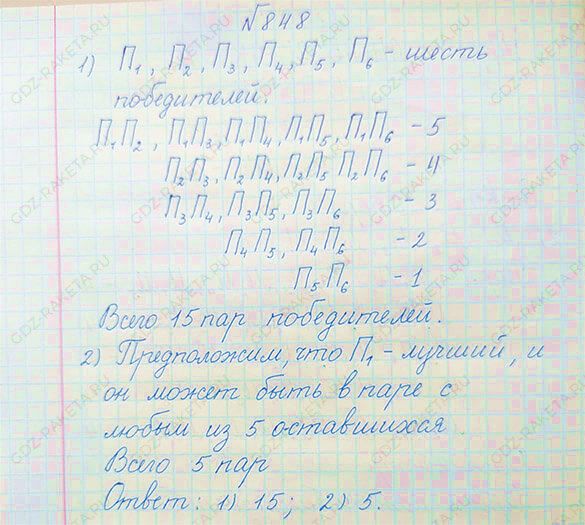 №848
1) П₁, П₂, П₃, П₄, П₅, П₆ - шесть
победителей.
П₁П₂, П₁П₃, П₁П₄, П₁П₅, П₁П₆ - 5
П₂П₃, П₂П₄, П₂П₅ П₂П₆ - 4
П₃П₄, П₃П₅, П₃П₆ - 3
П₄П₅, П₄П₆ - 2
П₅П₆ - 1
Всего 15 пар победителей.
2) Предположим, что П₁ - лучший, и
он может быть в паре с
любым из 5 оставшихся
Всего 5 пар
Ответ: 1) 15; 2) 5.
GDZ-RAKETA.RU